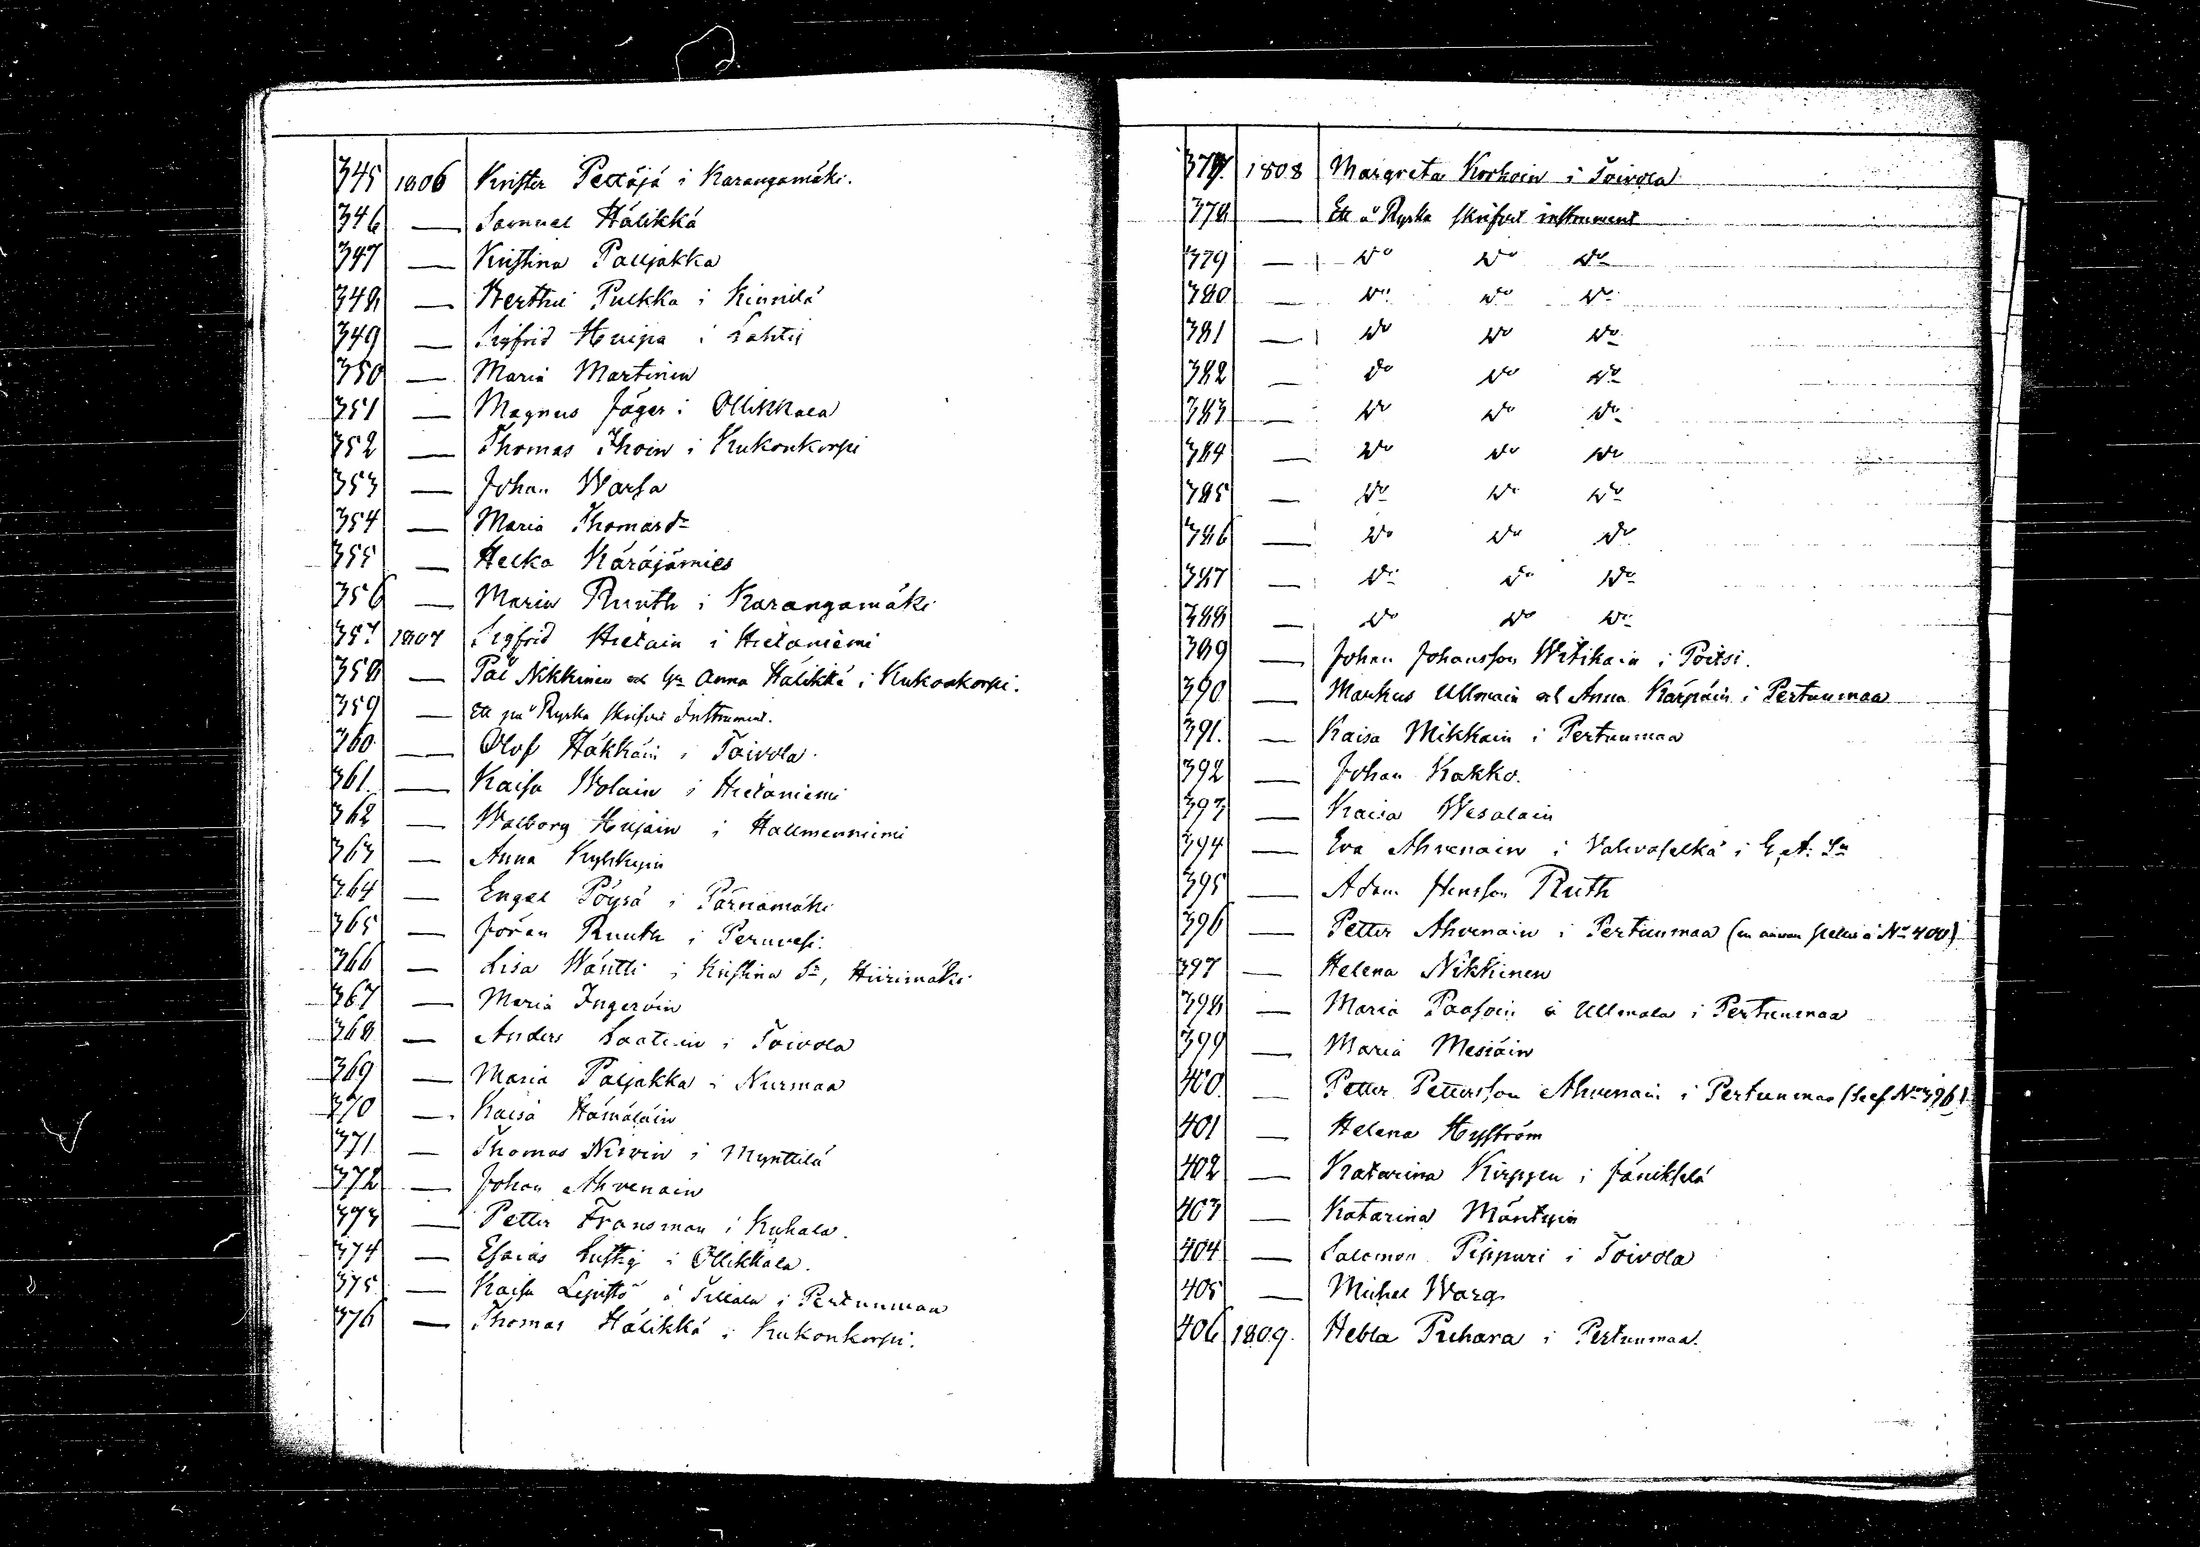 345 1806 Krister Pettäjä i Karangamäki.
346 — Samuel Hälikkä
347 — Kristina Paljakka
348 — Berthil Pulkka i Kinnilä
349 — Sigfrid Huipa i Lahtis
350 — Maria Martinen
351 — Magnus Jäger i Ollikkala
352 — Thomas Ihoin i Kukonkorpi
353 — Johan Warsa
354 — Maria Thomasdr
355 — Helka Käräjämies
356 — Maria Ruuth i Karangamäki
357 1807 Sigfrid Hietain i Hietaniemi
358 — Pål Nikkinen och Hu Anna Hälikkä i Kukonkorpi.
359 — Ett på Ryska skrifvit Instrument.
360 — Olof Häkkäin i Toivola.
361. — Kaisa Wolain i Hietaniemi
362 — Walborg Hujain i Hallmenniemi
363 — Anna Kyhkyin
364 — Engel Pöysä i Pärnämäki
365 — Jöran Ruuth i Peruvesi.
366 — Lisa Wäntti i Kristina Sn, Hiirimäki
367 — Maria Ingeröin
368 — Anders Laatuin i Toivola
369 — Maria Paljakka i Nurmaa
370 — Kaisa Hämäläin
371 — Thomas Nirvin i Mynttilä
372 — Johan Ahvenain
373 — Petter Fransman i Kuhala.
374 — Esaias Lustig i Ollikkala.
375 — Kaisa Lepistö å Tillala i Pertunmaa
376 — Thomas Hälikkä i Kukonkorpi.
377. 1808 Margreta Korhoin i Toivola
378 — Ett å Ryska skrifvet instrument
379 — Do Do Do
380 — Do Do Do
381 — Do Do Do
382 — Do Do Do
383 — Do Do Do
384 — Do Do Do
385 — Do Do Do
386 — Do Do Do
387 — Do Do Do
388 — Do Do Do
389 — Johan Johansson Witikain i Poitsi.
390 — Markus Ullmain och Anna Kärpäin i Pertunmaa
391. — Kaisa Mikkain i Pertunmaa
392 — Johan Kakko.
393 — Kaisa Wesalain
394 — Eva Ahvenain i Vahvaselkä i G. A. Sn
395 — Adam Hensson Ruth
396 — Petter Ahvenain i Pertunmaa (en annan Petter å No 400)
397 — Helena Nikkinen
398 — Maria Paasoin å Ullmala i Pertunmaa
399 — Maria Mesiäin
400. — Petter Pettersson Ahvenain i Pertunmaa (Se ef. No 396)
401 — Helena Hyström
402 — Katarina Kirppu i Jänikselä
403 — Katarina Mäntyin
404 — Salomon Pippuri i Toivola
405 — Michel Warg
406 1809. Hebla Puhara i Pertunmaa.